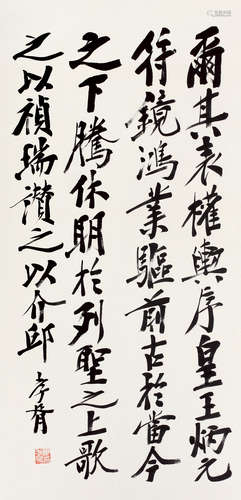 爾其表權輿序皇王炳元
符鏡鴻業驅前古於當今
之下騰休朙於列聖之上歌
之以禎瑞讚之以介邱 孝胥